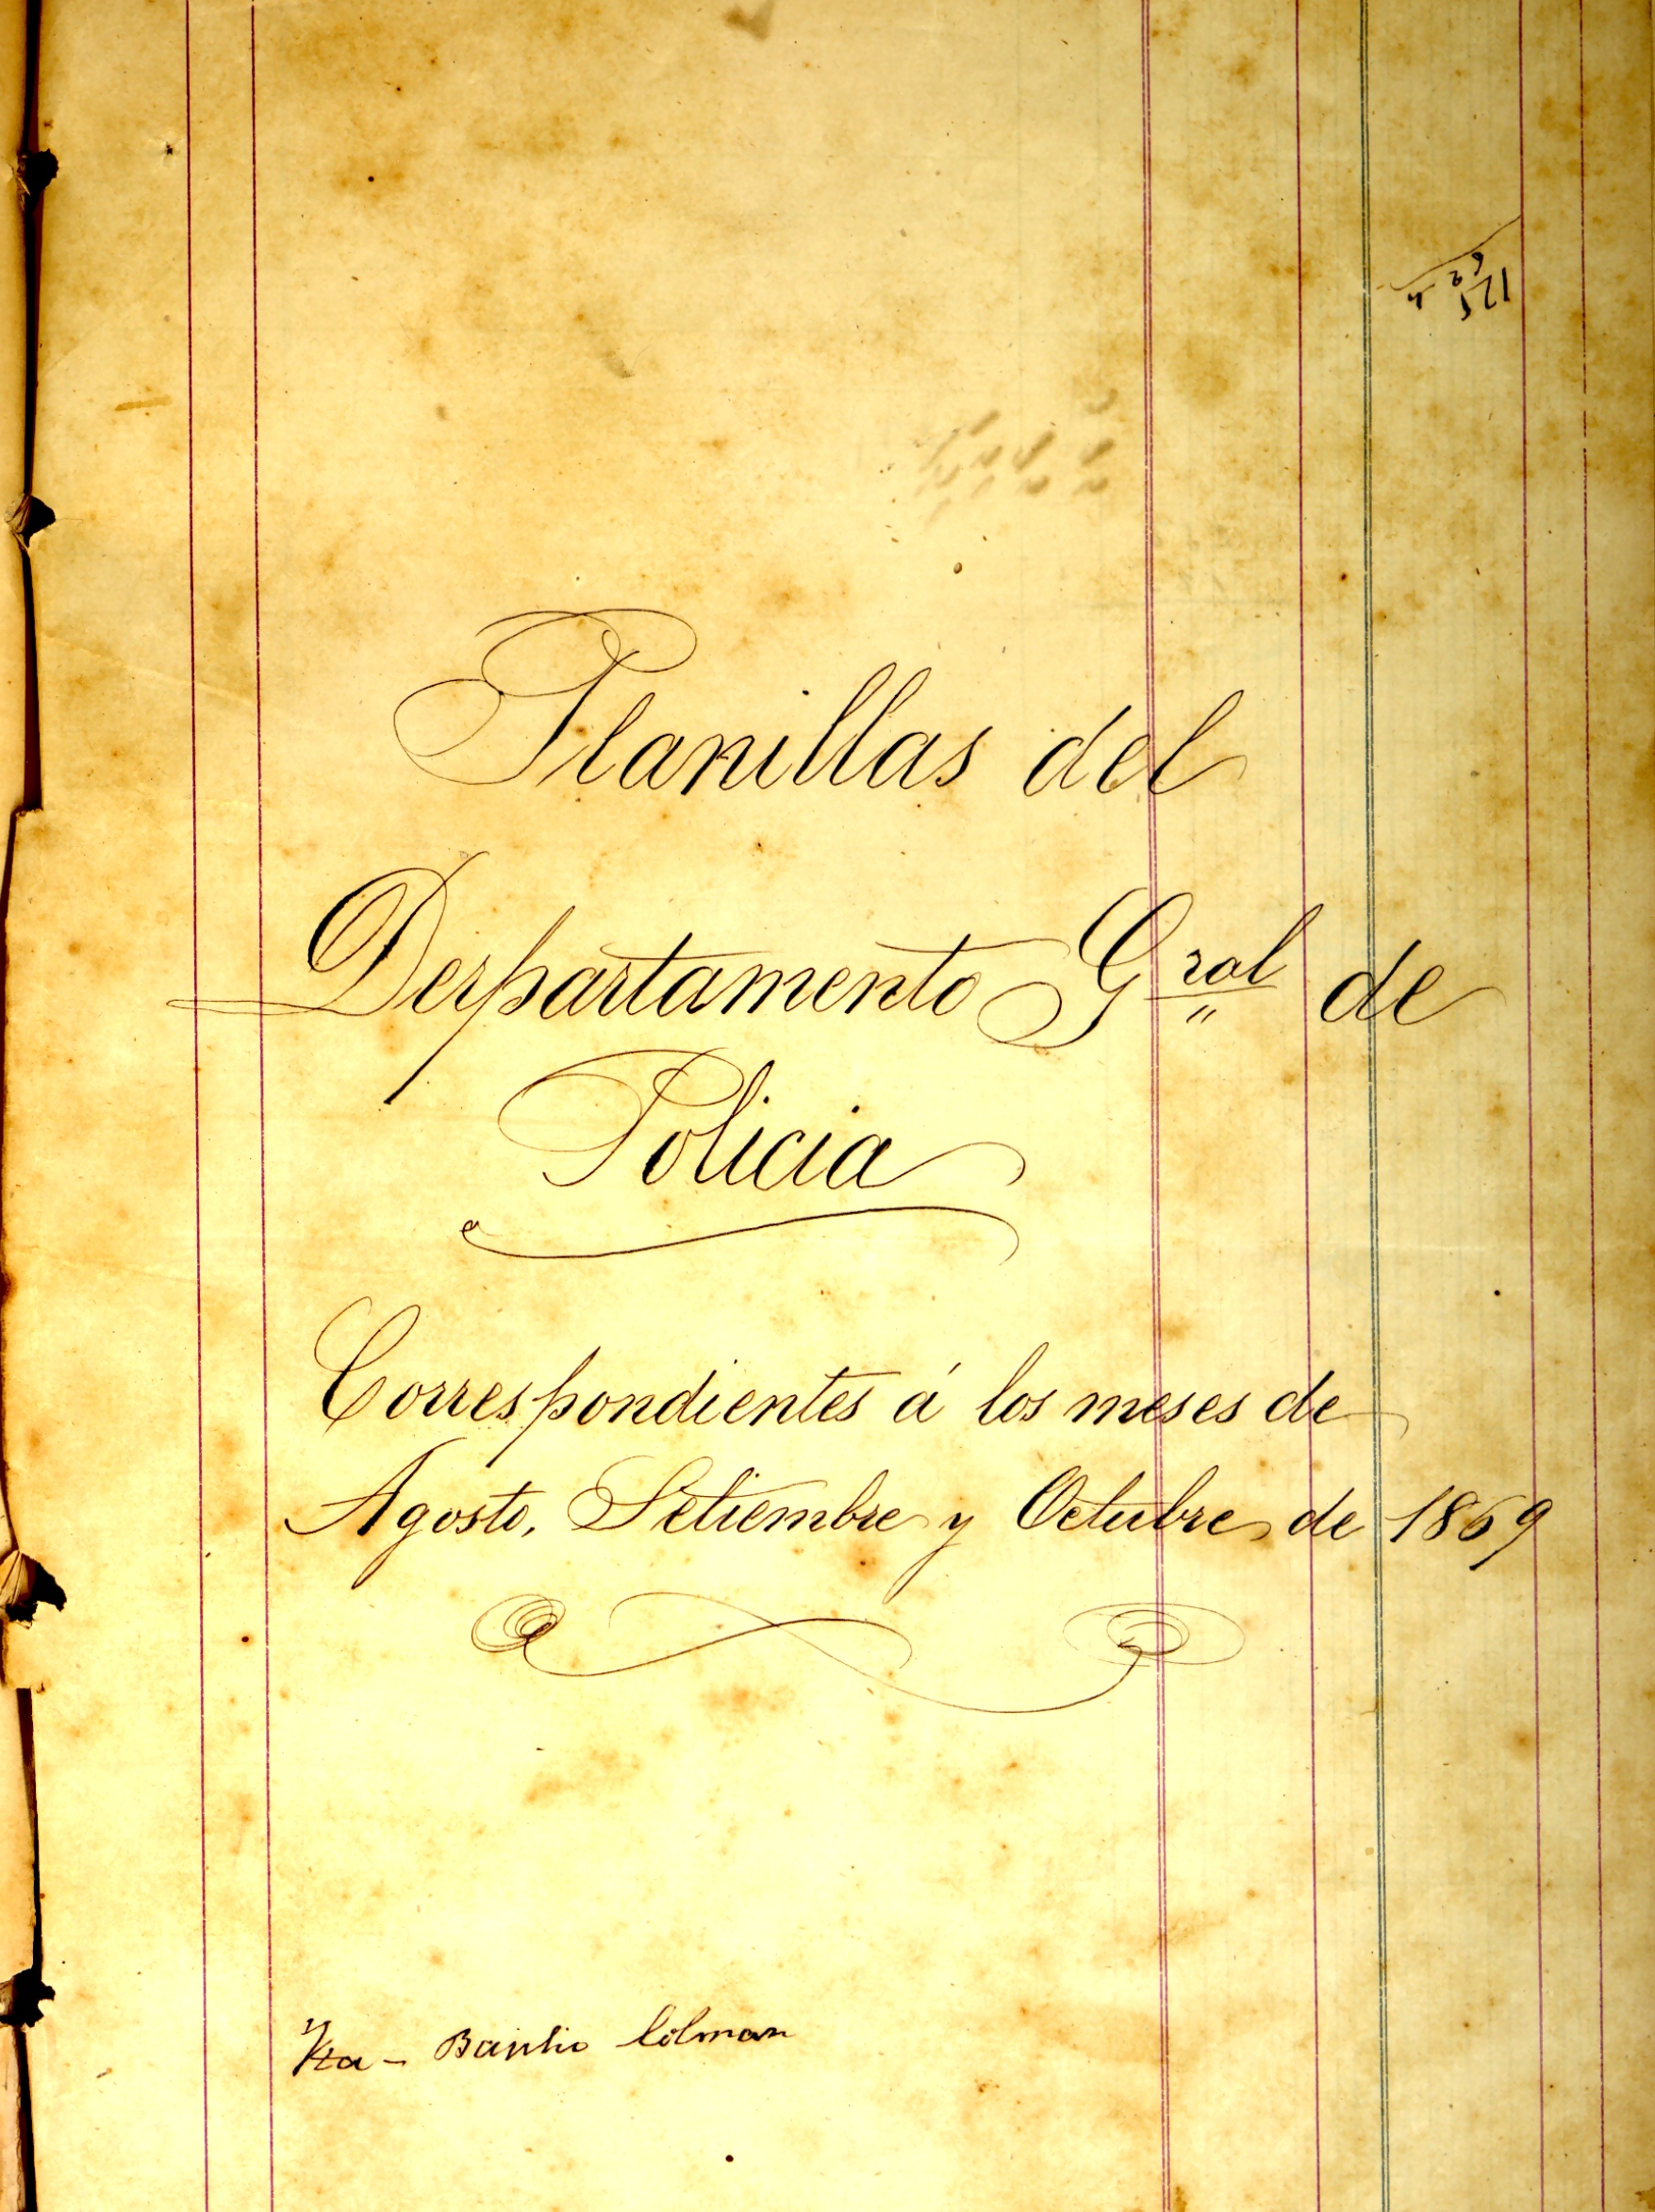 Planillas del
Derpartamento Gral de
Policia
Correspondientes á los meses de
Agosto, Setiembre y Octubre de 1869
Colman